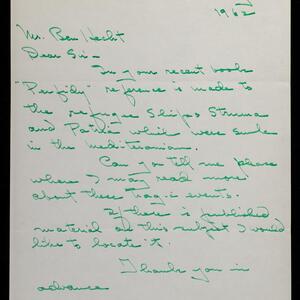 1962
Mr. Ben Hecht
Dear Sir-
In your recent book
"Perfidy" reference is made to
the refugee Ships Struma
and Patria which were sunk
in the mediteranian.
Can you tell me please
where I may read more
about these tragic events.
If there is published
material on this subject I would
like to locate it.
Thank you in
advance